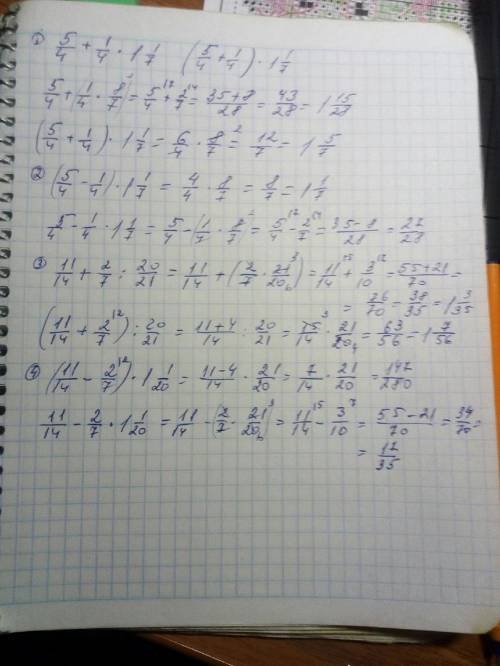 1) 5/4 + 1/4 · 1 1/7 (5/4 + 1/4) · 1 1/7
5/4 + (1/4 · 8/7) = 5/4 + 2/7 = 35+8/28 = 43/28 = 1 15/28
(5/4 + 1/4) · 1 1/7 = 6/4 · 8/7 = 12/7 = 1 5/7
2) (5/4 - 1/4) · 1 1/7 = 4/4 · 8/7 = 8/7 = 1 1/7
5/4 - 1/4 · 1 1/7 = 5/4 - (1/7 · 8/7) = 5/4 - 2/7 = 35-8/28 = 27/28
3) 11/14 + 2/7 : 20/21 = 11/14 + (2/7 · 21/20) = 11/14 + 3/10 = 55+21/70 =
= 76/70 = 38/35 = 1 3/35
(11/14 + 2/7) : 20/21 = 11+4/14 : 20/21 = 15/14 · 21/20 = 63/56 = 1 7/56
4) (11/14 - 2/7) · 1 1/20 = 11-4/14 · 21/20 = 7/14 · 21/20 = 147/280
11/14 - 2/7 · 1 1/20 = 11/14 - (2/7 · 21/20) = 11/14 - 3/10 = 55-21/70 = 34/70 =
= 17/35